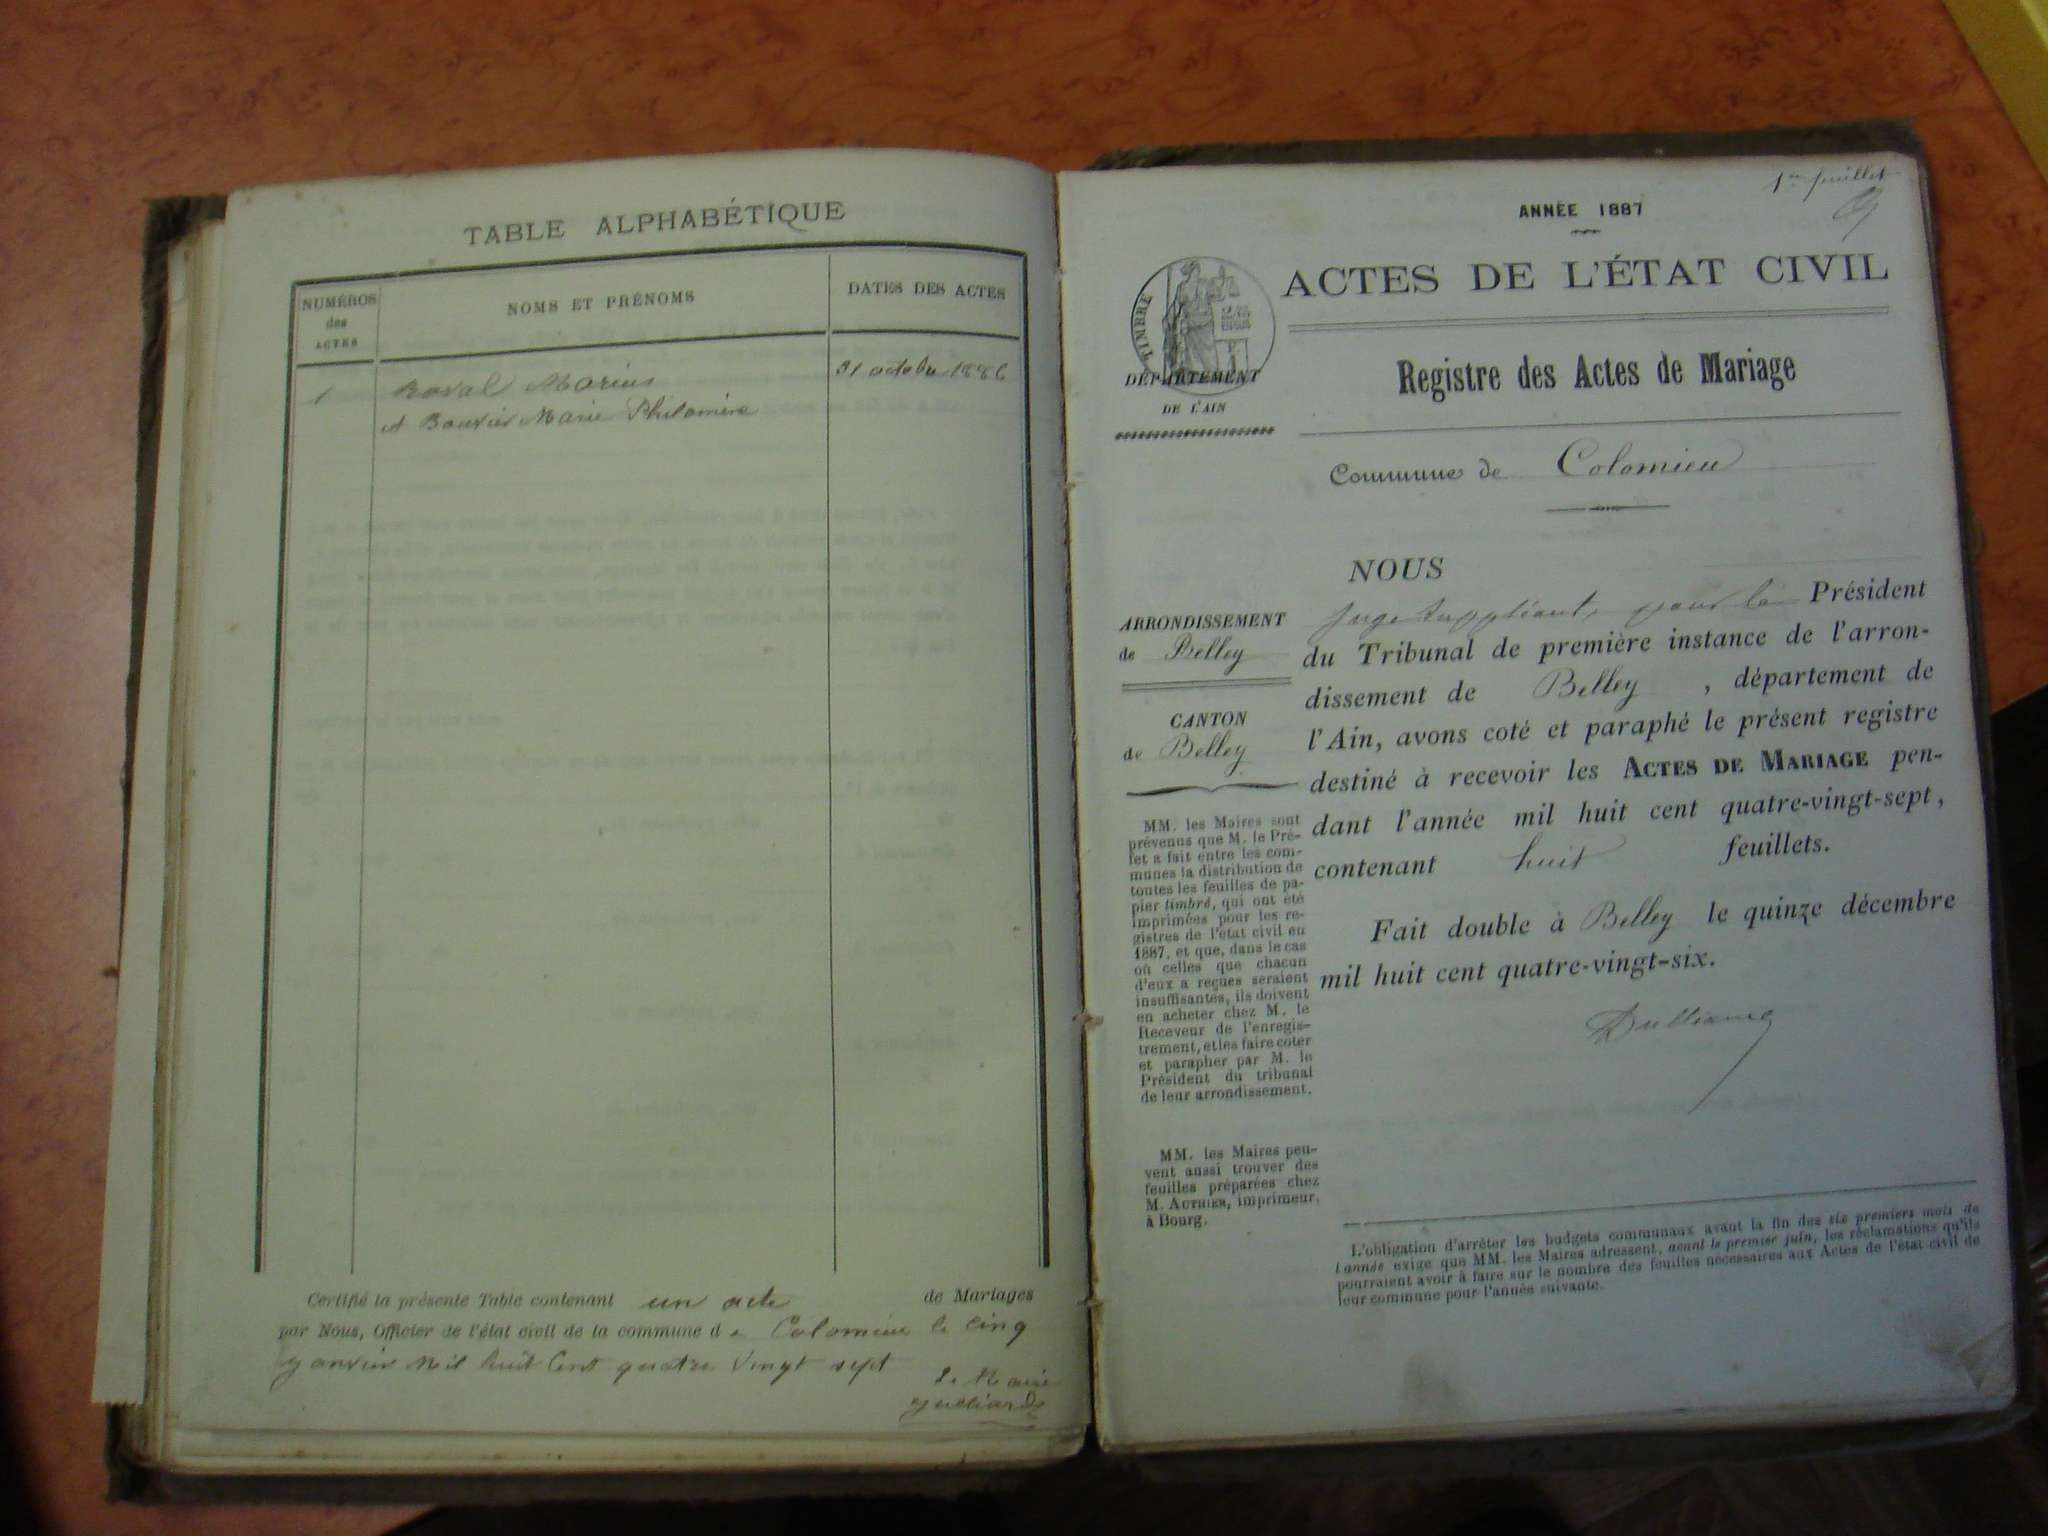 TABLE ALPHABÉTIQUE
NUMÉROS
des
ACTES
NOMS ET PRÉNOMS
DATES DES ACTES
1
Marius
31 octobre 1886
et Bouvier Marie Philomène
Certifié la présente Table contenant un acte de Mariages
par Nous, Officier de l'état civil de la commune de Colomieu le cinq
janvier mil huit cent quatre vingt sept
Le Maire
1er feuillet
ANNÉE 1887
ACTES DE L'ÉTAT CIVIL
TIMBRE
DÉPARTEMENT
DE L'AIN
Registre des Actes de Mariage
Commune de Colomieu
NOUS
Juge Suppléant, pour le Président
du Tribunal de première instance de l'arron-
dissement de Belley, département de
l'Ain, avons coté et paraphé le présent registre
destiné à recevoir les ACTES DE MARIAGE pen-
dant l'année mil huit cent quatre-vingt-sept,
contenant huit feuillets.
Fait double à Belley le quinze décembre
mil huit cent quatre-vingt-six.
ARRONDISSEMENT
de Belley
CANTON
de Belley
MM. les Maires sont
prévenus que M. le Pré-
fet a fait entre les com-
munes la distribution de
toutes les feuilles de pa-
pier timbré, qui ont été
imprimées pour les re-
gistres de l'état civil en
1887, et que, dans le cas
où celles que chacun
d'eux a reçues seraient
insuffisantes, ils doivent
en acheter chez M. le
Receveur de l'enregis-
trement, et les faire coter
et parapher par M. le
Président du tribunal
de leur arrondissement.
MM. les Maires peu-
vent aussi trouver des
feuilles préparées chez
M. AUTHIER, imprimeur,
à Bourg.
L'obligation d'arrêter les budgets communaux avant la fin des six premiers mois de
l'année exige que MM. les Maires adressent, avant le premier juin, les réclamations qu'ils
pourraient avoir à faire sur le nombre des feuilles nécessaires aux Actes de l'état civil de
leur commune pour l'année suivante.